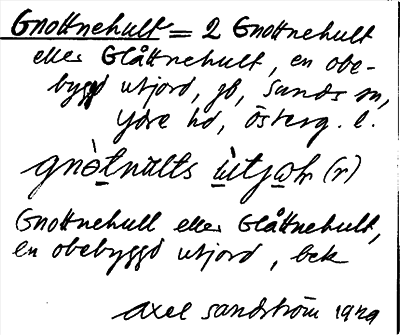 Gnottnehult = 2 Gnottnehult
eller Glåttnehult, en obe-
byggd utjord, jb, Sunds sn,
Ydre hd, Österg. l.
gnòtnălts ùtjωr (r)
Gnottnehult eller Glåttnehult,
en obebyggd utjord, bek
Axel Sandström 1929